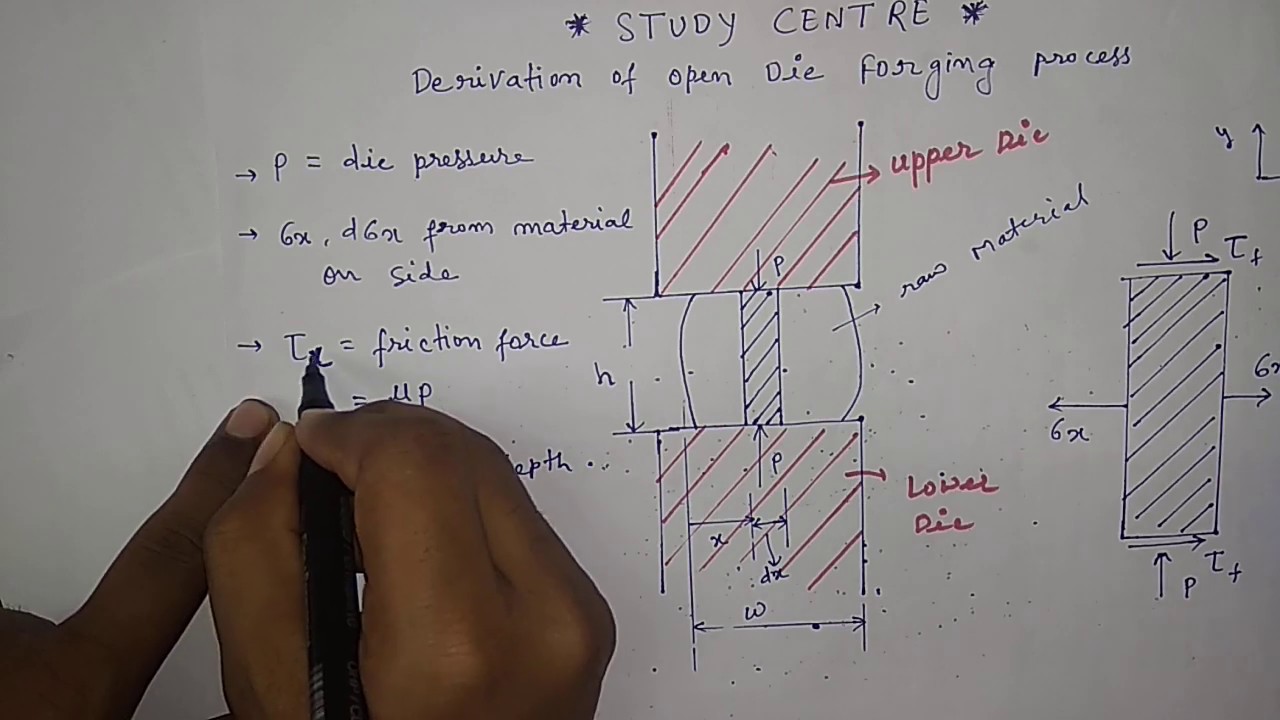 * STUDY CENTRE *
Derivation of open Die forging process
→ P = die pressure
→ 6x, d6x from material
on side
→ τx = friction force
= μp
depth
upper Die
raw material
P
h
P
x
dx
w
Lower
Die
y
P
τf
6x
6x
τf
P